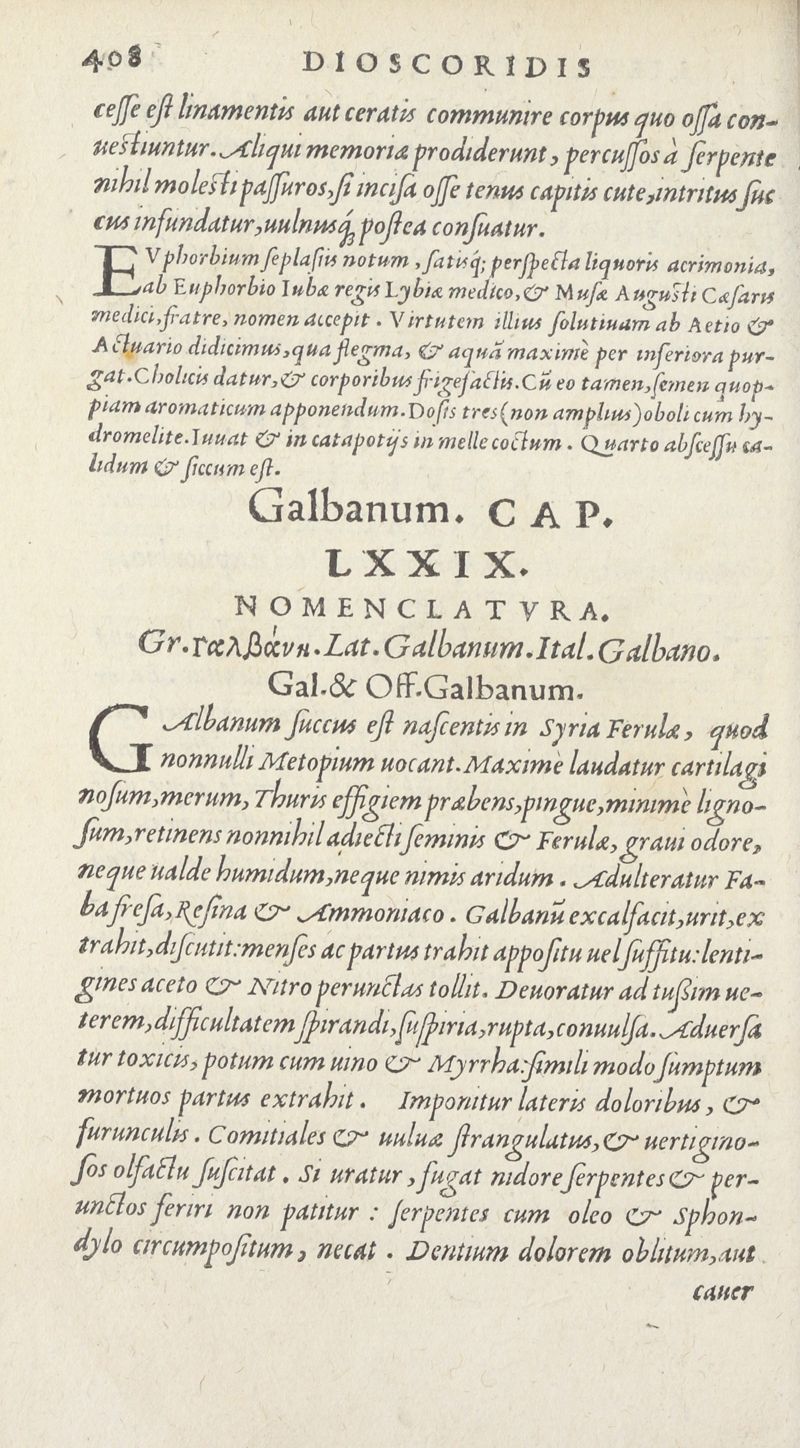 408 DIOSCORIDIS
ceſſe eſt linamentis aut ceratis communire corpus quo oſſa con-
ueſtiuntur. Aliqui memoriæ prodiderunt, percuſſos à ſerpente
nihil moleſti paſſuros, ſi inciſa oſſe tenus capitis cute, intritus ſuc
cus infundatur, uulnusq́ꝫ poſtea conſuatur.
EVphorbium ſeplaſiis notum, ſatisq́; perſpecta liquoris acrimonia,
ab Euphorbio Iubæ regis Lybiæ medico, & Muſæ Auguſti Cæſaris
medici, fratre, nomen accepit. Virtutem illius ſolutiuam ab Aetio &
Actuario didicimus, qua flegma, & aquã maximè per inferiora pur-
gat. Cholicis datur, & corporibus frigefactis. Cũ eo tamen, ſemen quop-
piam aromaticum apponendum. Doſis tres (non amplius) oboli cum hy-
dromelite. Iuuat & in catapotijs in melle coctum. Quarto abſceſſu ca-
lidum & ſiccum eſt.
Galbanum. CAP.
LXXIX.
NOMENCLATVRA.
Gr. Γαλβάνη. Lat. Galbanum. Ital. Galbano.
Gal. & Off. Galbanum.
GAlbanum ſuccus eſt naſcentis in Syria Ferulæ, quod
nonnulli Metopium uocant. Maximè laudatur cartilagi
noſum, merum, Thuris effigiem præbens, pingue, minimè ligno-
ſum, retinens nonnihil adiecti ſeminis & Ferulæ, graui odore,
neque ualde humidum, neque nimis aridum. Adulteratur Fa-
ba freſa, Reſina & Ammoniaco. Galbanũ excalfacit, urit, ex
trahit, diſcutit: menſes ac partus trahit appoſitu uel ſuffitu: lenti-
gines aceto & Nitro perunctas tollit. Deuoratur ad tuſsim ue-
terem, difficultatem ſpirandi, ſuſpiria, rupta, conuulſa. Aduerſa
tur toxicis, potum cum uino & Myrrha: ſimili modo ſumptum
mortuos partus extrahit. Imponitur lateris doloribus, &
furunculis. Comitiales & uuluæ ſtrangulatus, & uertigino-
ſos olfactu ſuſcitat. Si uratur, fugat nidore ſerpentes & per-
unctos feriri non patitur: ſerpentes cum oleo & Sphon-
dylo circumpoſitum, necat. Dentium dolorem oblitum, aut
cauer